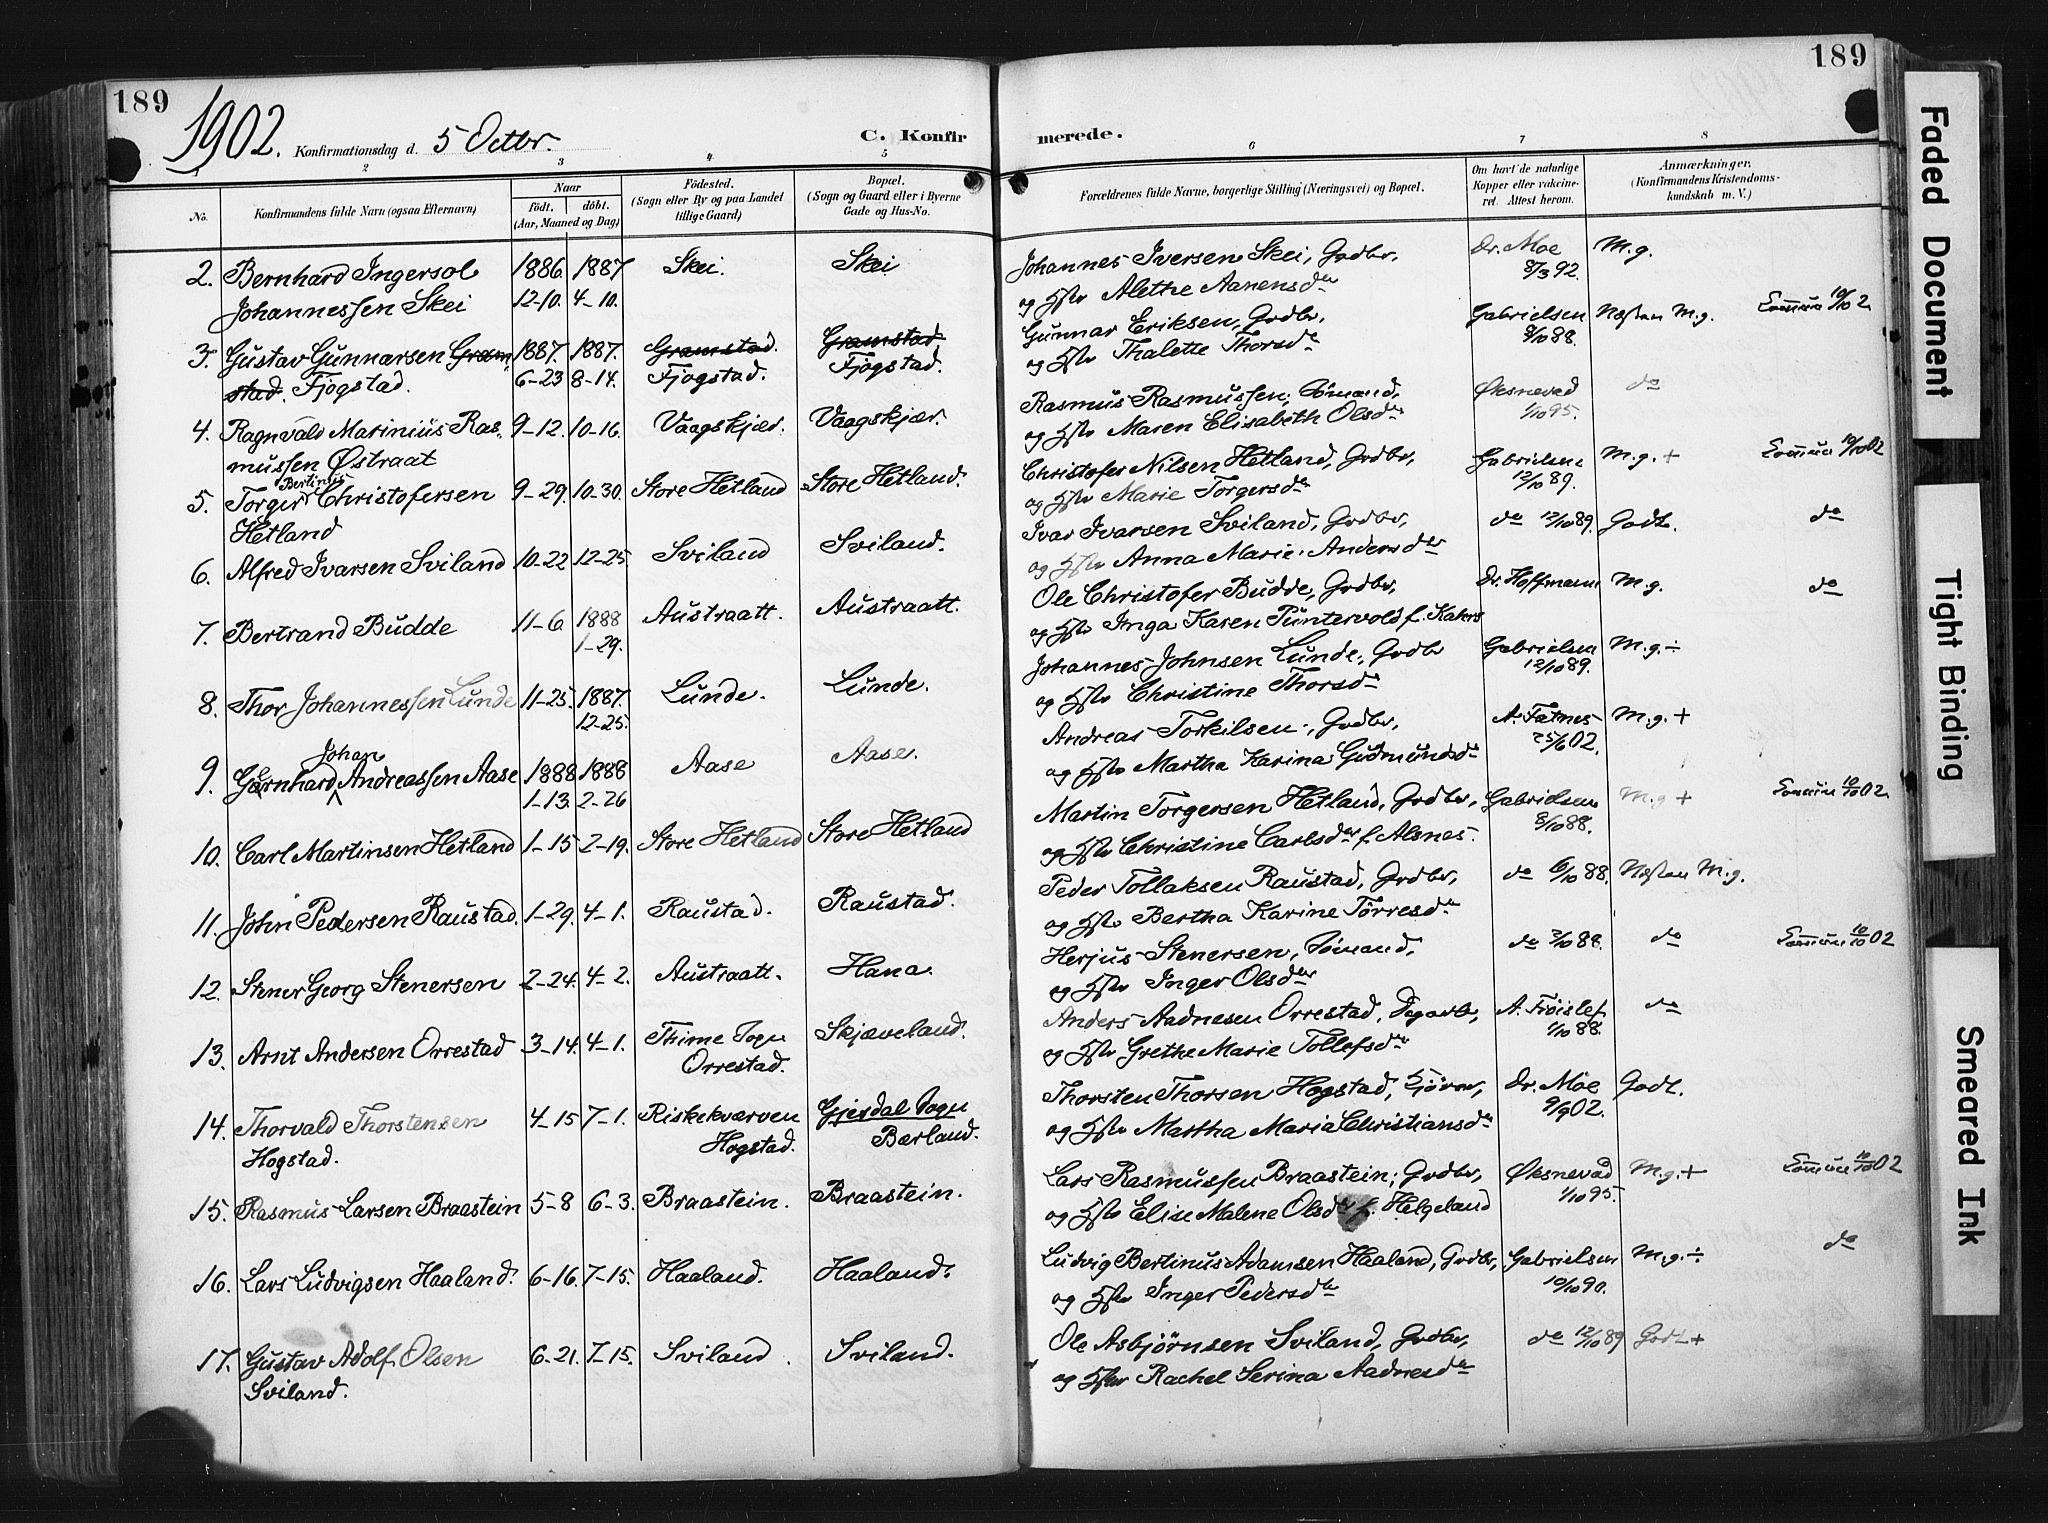 189
189
1902. Konfirmationsdag d. 5 Octbr. C. Konfir merede.
2 3 4 5 6 7 8
No. Konfirmandens fulde Navn (ogsaa Efternavn)
Naar
födt. döbt.
(Aar, Maaned og Dag)
Födested.
(Sogn eller By og paa Landet
tillige Gaard)
Bopæl.
(Sogn og Gaard eller i Byerne
Gade og Hus-No.
Forældrenes fulde Navne, borgerlige Stilling (Næringsvei) og Bopæl.
Om havt de naturlige
Kopper eller vakcine-
ret. Attest herom.
Anmærkninger.
(Konfirmandens Kristendoms-
kundskab m. V.)
2. Bernhard Ingersol 1886. 1887 Skei. Skei Johannes Iversen Skei, Grdbr, Dr. Moe M.g.
Johannessen Skei 12-10. 4-10. og Hstr Alethe Aanensdr 8/3 92.
3. Gustav Gunnarsen Gram- 1887. 1887. Gramstad. Gramstad Gunnar Eriksen, Grdbr, Gabrielsen Næsten M.g. 10/10 02
stad. Fjogstad. 6-23 8-14. Fjogstad. Fjogstad. og Hstr Thalette Thorsdr 8/10 88.
4. Ragnvald Marinius Ras- 9-12. 10-16. Vaagskjær. Vaagskjær. Rasmus Rasmussen, Sømand, Øksnevad do
mussen Østraat og Hstr Maren Elisabeth Olsdr 1/10 95.
Bertinus
5. Torger Christofersen 9-29. 10-30. Store Hetland Store Hetland. Christofer Nilsen Hetland, Grdbr, Gabrielsen M.g. + 10/10 02
Hetland og Hstr Marie Torgersdr 12/10 89.
6. Alfred Ivarsen Sviland 10-22 12-25. Sviland Sviland. Ivar Ivarsen Sviland, Grdbr, do 12/10 89. Godt. do
og Hstr Anna Marie Andersdtr
7. Bertrand Budde 11-6 1888 Austraatt. Austraatt. Ole Christofer Budde, Grdbr, Dr. Hoffmann M.g. do
1-29. og Hstr Inga Karen Puntervold f. Kahrs
8. Thor Johannessen Lunde 11-25. 1887. Lunde. Lunde. Johannes Johnsen Lunde, Grdbr Gabrielsen M.g. ÷
12-25. og Hstr Christine Thorsdr 12/10 89.
Johan
9. Gernhard Andreassen Aase 1888 1888 Aase Aase. Andreas Torkilsen, Grdbr, A. Fatnes M.g. +
1-13. 2-26 og Hstr Martha Karina Gudmundsdr 25/6 02.
10. Carl Martinsen Hetland 1-15 2-19. Store Hetland Store Hetland Martin Torgersen Hetland, Grdbr, Gabrielsen M.g + 10/10 02
og Hstr Christine Carlsdr f. Alsnes. 8/10 88.
11. John Pedersen Raustad. 1-29. 4-1. Raustad. Raustad. Peder Tollaksen Raustad, Grdbr, do 6/10 88. Næsten M.g.
og Hstr Bertha Karine Tørresdr
12. Stener Georg Stenersen 2-24. 4-2. Austraatt. Hana. Herjus Stenersen, Sømand, do 3/10 88. do 10/10 02
og Hstr Inger Olsdr
13. Arnt Andersen Orrestad 3-14. 4-1. Thime Sogn Skjæveland. Anders Aadnesen Orrestad, Dgarbr, A. Frøislef do
Orrestad. og Hstr Grethe Marie Tollefsdr 1/10 88.
14. Thorvald Thorstensen 4-15 7-1. Riskekværven Gjesdal Sogn Thorsten Thorsen Hogstad, Kjører, Dr. Moe Godt.
Hogstad. Hogstad. Bærland. og Hstr Martha Maria Christiansdr 9/9 02.
15. Rasmus Larsen Braastein 5-8 6-3. Braastein. Braastein. Lars Rasmussen Braastein, Grdbr, Øksnevad M.g. + 10/10 02
og Hstr Elise Malene Olsdr f. Helgeland 1/10 95.
16. Lars Ludvigsen Haaland. 6-16. 7-15. Haaland. Haaland. Ludvig Bertinus Adamsen Haaland, Grdbr, Gabrielsen M.g. ÷ do
og Hstr Inger Pedersdtr 10/10 90.
17. Gustav Adolf Olsen 6-21. 7-15. Sviland. Sviland. Ole Asbjørnsen Sviland, Grdbr, do 12/10 89 Godt +
Sviland. og Hstr Rachel Serina Aadnesdr
Faded Document
Tight Binding
Smeared Ink